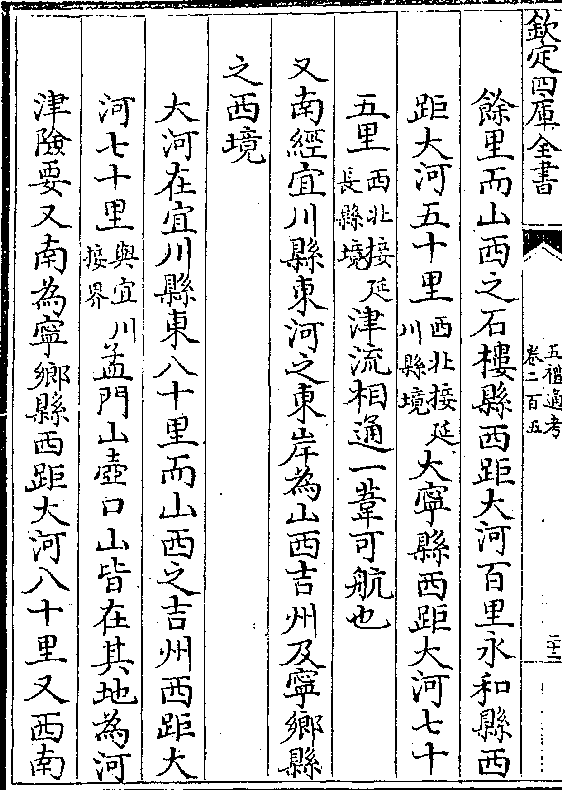 欽定四庫全書
五禮通考
卷二百五
二十二
餘里而山西之石樓縣西距大河百里永和縣西
距大河五十里西北接延川縣境大寧縣西距大河七十
五里西北接延長縣境津流相通一葦可航也
又南經宜川縣東河之東岸為山西吉州及寧鄉縣
之西境
大河在宜川縣東八十里而山西之吉州西距大
河七十里與宜川接界孟門山壺口山皆在其地為河
津險要又南為寧鄉縣西距大河八十里又西南